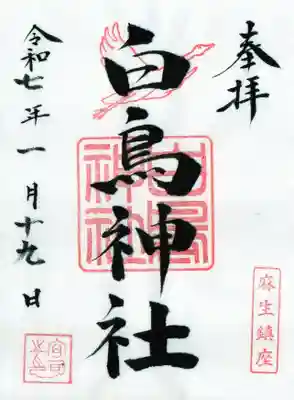 奉拝
麻生鎮座
白鳥神社
白鳥神社
令和七年一月十九日